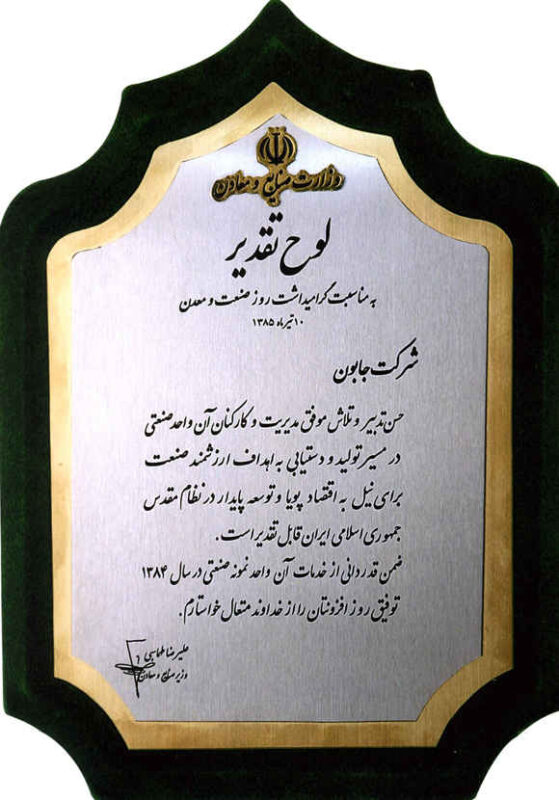 وزارت صنایع و معادن
لوح تقدیر
به مناسبت گرامیداشت روز صنعت و معدن
۱۰ تیرماه ۱۳۸۵
شرکت جابون
حسن تدبیر و تلاش موفق مدیریت و کارکنان آن واحد صنعتی
در مسیر تولید و دستیابی به اهداف ارزشمند صنعت
برای نیل به اقتصاد پویا و توسعه پایدار در نظام مقدس
جمهوری اسلامی ایران قابل تقدیر است.
ضمن قدردانی از خدمات آن واحد نمونه صنعتی در سال ۱۳۸۴
توفیق روز افزونتان را از خداوند متعال خواستارم.
علیرضا طهماسبی
وزیر صنایع و معادن